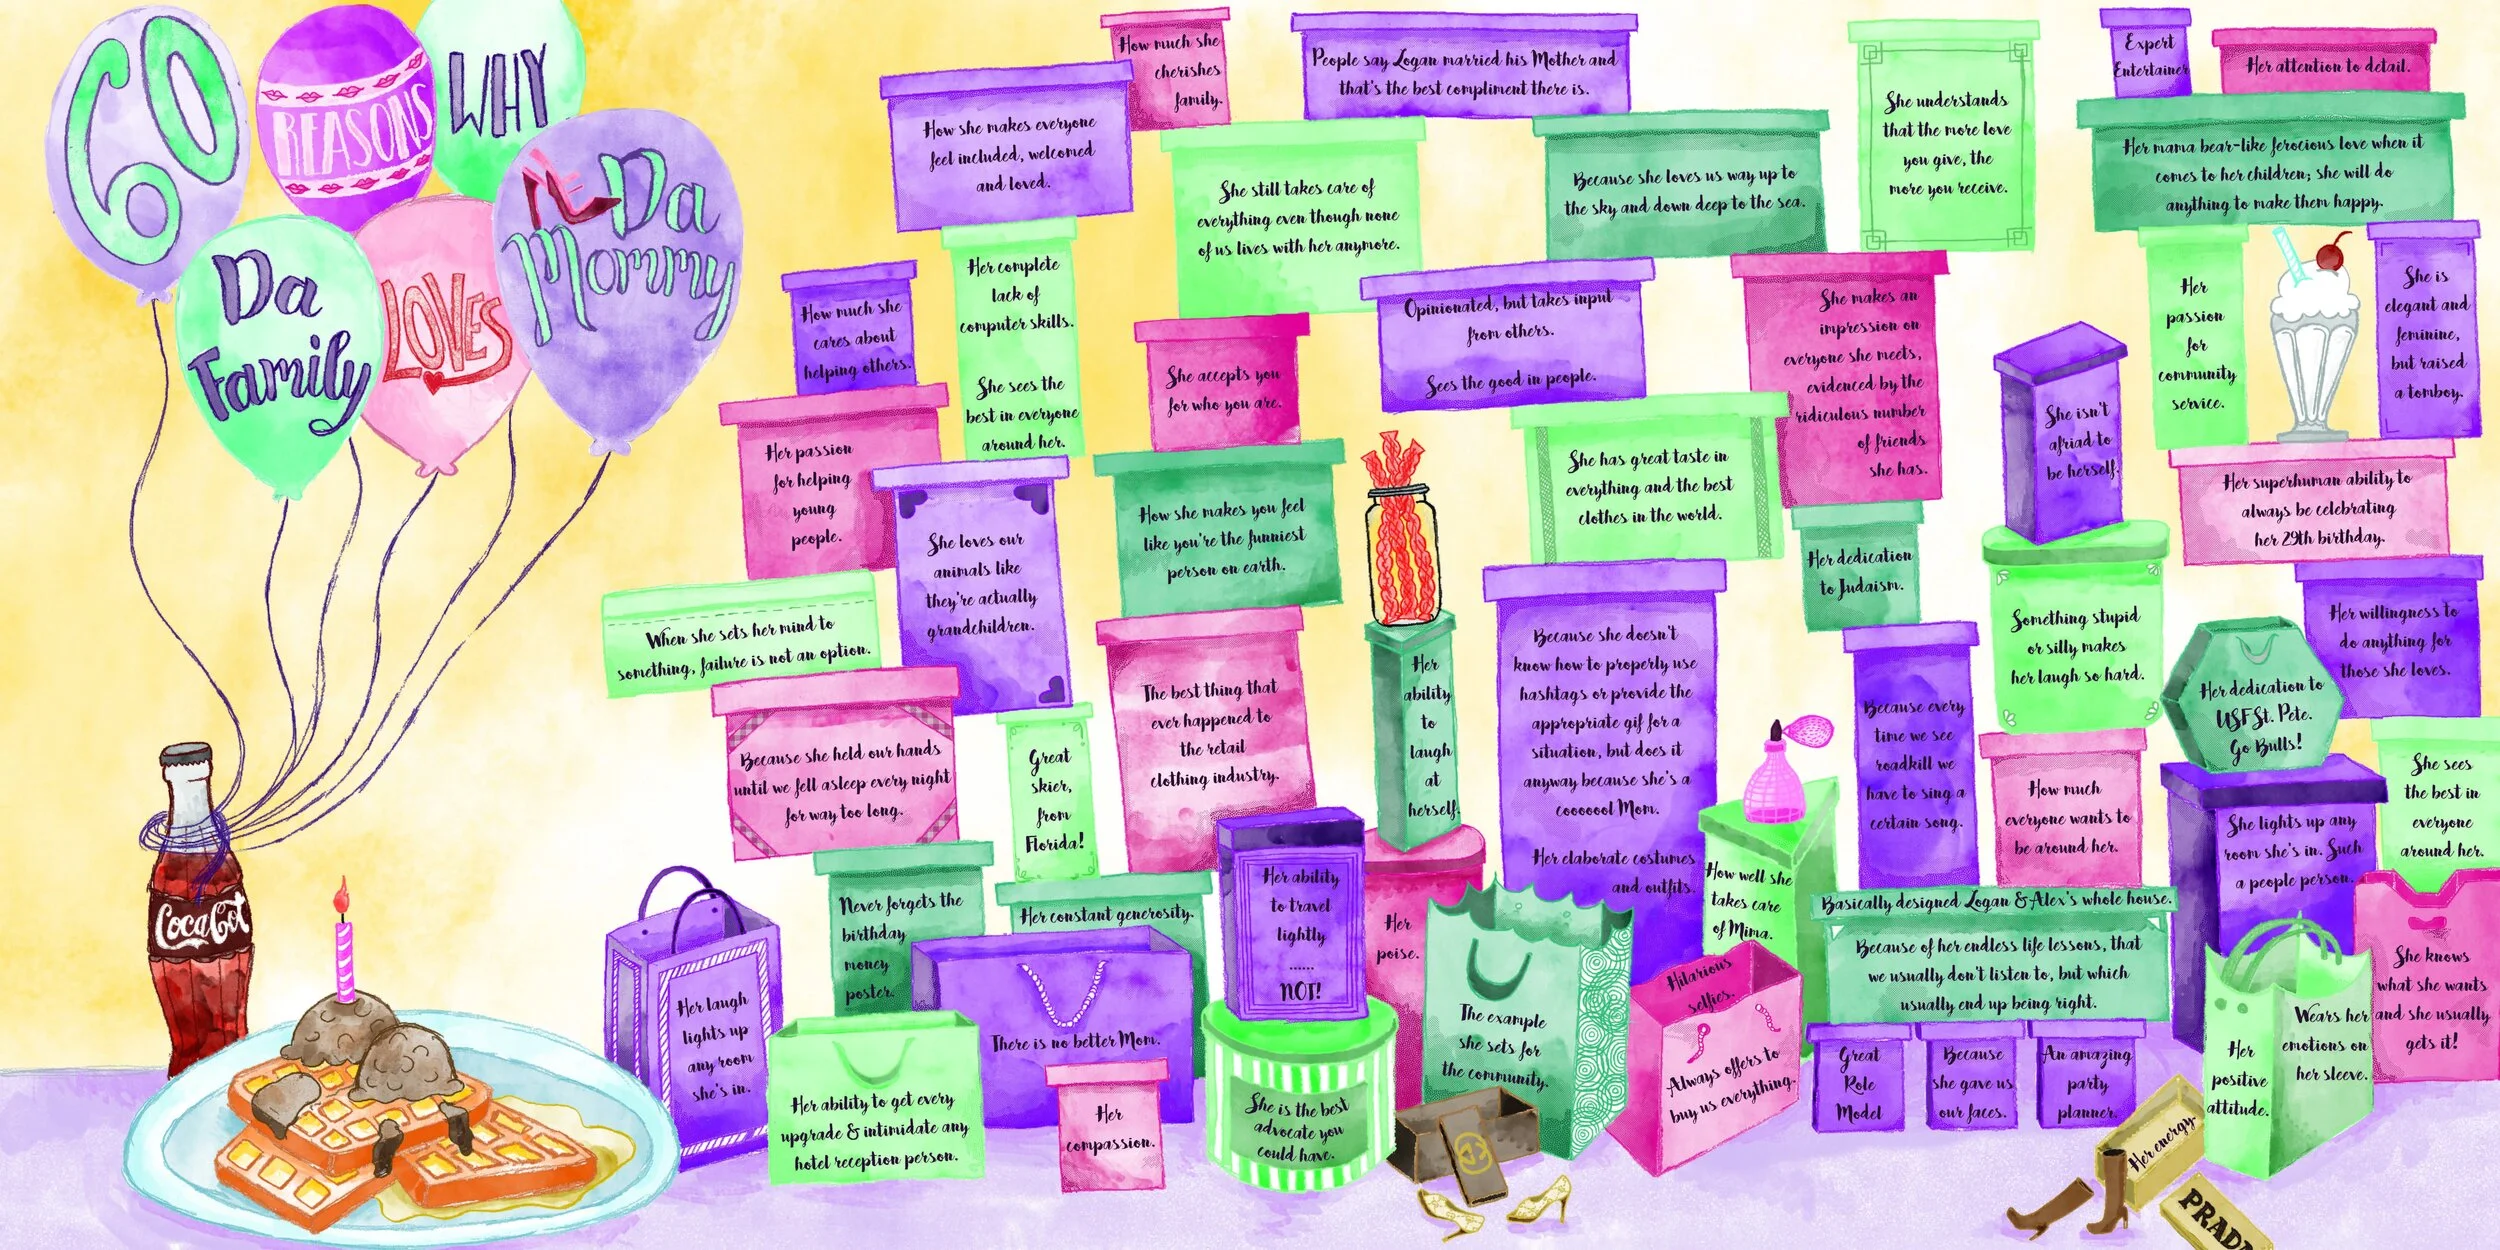 60
REASONS
WHY
Da
Family
LOVES
Da
Mommy
CocaCot
How much she
cherishes
family.
How she makes everyone
feel included, welcomed
and loved.
People say Logan married his Mother and
that's the best compliment there is.
She still takes care of
everything even though none
of us lives with her anymore.
Because she loves us way up to
the sky and down deep to the sea.
She understands
that the more love
you give, the
more you receive.
Expert
Entertainer
Her attention to detail.
Her mama bear-like ferocious love when it
comes to her children; she will do
anything to make them happy.
How much she
cares about
helping others.
Her complete
lack of
computer skills.
She sees the
best in everyone
around her.
She accepts you
for who you are.
Opinionated, but takes input
from others.
Sees the good in people.
She makes an
impression on
everyone she meets,
evidenced by the
ridiculous number
of friends
she has.
She isn't
afriad to
be herself.
Her
passion
for
community
service.
She is
elegant and
feminine,
but raised
a tomboy.
Her passion
for helping
young
people.
She loves our
animals like
they're actually
grandchildren.
How she makes you feel
like you're the funniest
person on earth.
She has great taste in
everything and the best
clothes in the world.
Her dedication
to Judaism.
Her superhuman ability to
always be celebrating
her 29th birthday.
When she sets her mind to
something, failure is not an option.
Because she held our hands
until we fell asleep every night
for way too long.
Great
skier,
from
Florida!
The best thing that
ever happened to
the retail
clothing industry.
Her
ability
to
laugh
at
herself.
Because she doesn't
know how to properly use
hashtags or provide the
appropriate gif for a
situation, but does it
anyway because she's a
cooooool Mom.
Her elaborate costumes
and outfits.
Because every
time we see
roadkill we
have to sing a
certain song.
Something stupid
or silly makes
her laugh so hard.
Her willingness to
do anything for
those she loves.
Her dedication to
USF St. Pete.
Go Bulls!
How much
everyone wants to
be around her.
She lights up any
room she's in. Such
a people person.
She sees
the best in
everyone
around her.
Never forgets the
birthday
money
poster.
Her constant generosity.
Her ability
to travel
lightly
......
NOT!
Her
poise.
How well she
takes care
of Mima.
Basically designed Logan & Alex's whole house.
Because of her endless life lessons, that
we usually don't listen to, but which
usually end up being right.
She knows
what she wants
and she usually
gets it!
Her laugh
lights up
any room
she's in.
There is no better Mom.
Her ability to get every
upgrade & intimidate any
hotel reception person.
Her
compassion.
She is the best
advocate you
could have.
The example
she sets for
the community.
Hilarious
selfies.
Always offers to
buy us everything.
Great
Role
Model
Because
she gave us
our faces.
An amazing
party
planner.
Her
positive
attitude.
Wears her
emotions on
her sleeve.
Her energy.